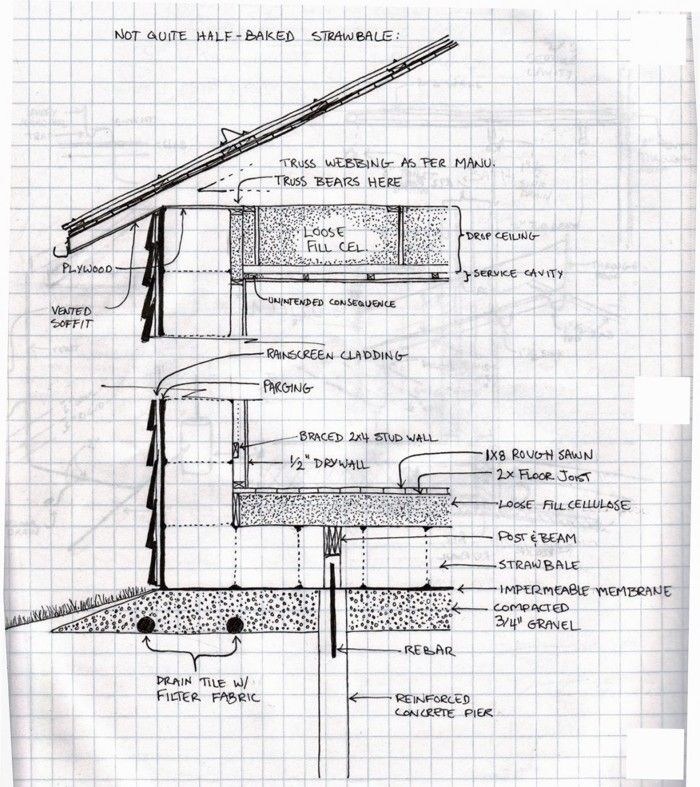 NOT QUITE HALF-BAKED STRAWBALE:
TRUSS WEBBING AS PER MANU.
TRUSS BEARS HERE
LOOSE
FILL CEL.
DROP CEILING
PLYWOOD
SERVICE CAVITY
UNINTENDED CONSEQUENCE
VENTED
SOFFIT
RAINSCREEN CLADDING
PARGING
BRACED 2X4 STUD WALL
1/2" DRYWALL
1X8 ROUGH SAWN
2X FLOOR JOIST
LOOSE FILL CELLULOSE
POST & BEAM
STRAWBALE
IMPERMEABLE MEMBRANE
COMPACTED
3/4" GRAVEL
REBAR
DRAIN TILE W/
FILTER FABRIC
REINFORCED
CONCRETE PIER